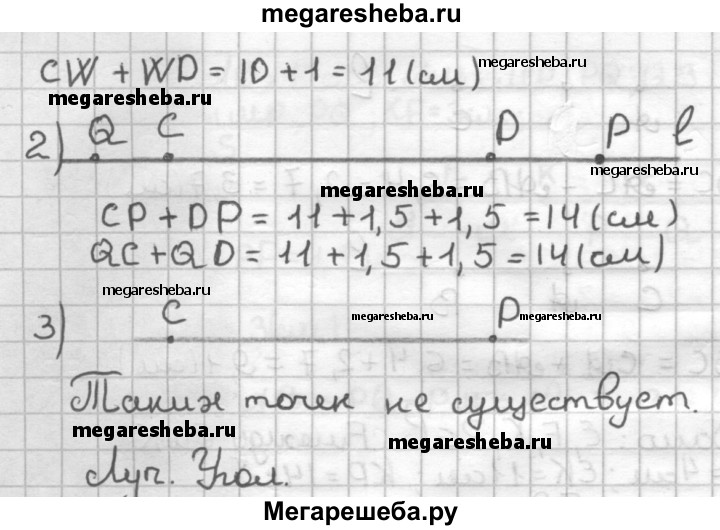 megaresheba.ru
CW + WD = 10 + 1 = 11 (см) megaresheba.ru
megaresheba.ru
2) Q C D P l
megaresheba.ru
megaresheba.ru
CP + DP = 11 + 1,5 + 1,5 = 14 (см)
QC + QD = 11 + 1,5 + 1,5 = 14 (см)
megaresheba.ru
3) C D
megaresheba.ru megaresheba.ru
Таких точек не существует.
megaresheba.ru megaresheba.ru
Луч. Угол.
Мегарешеба.ру